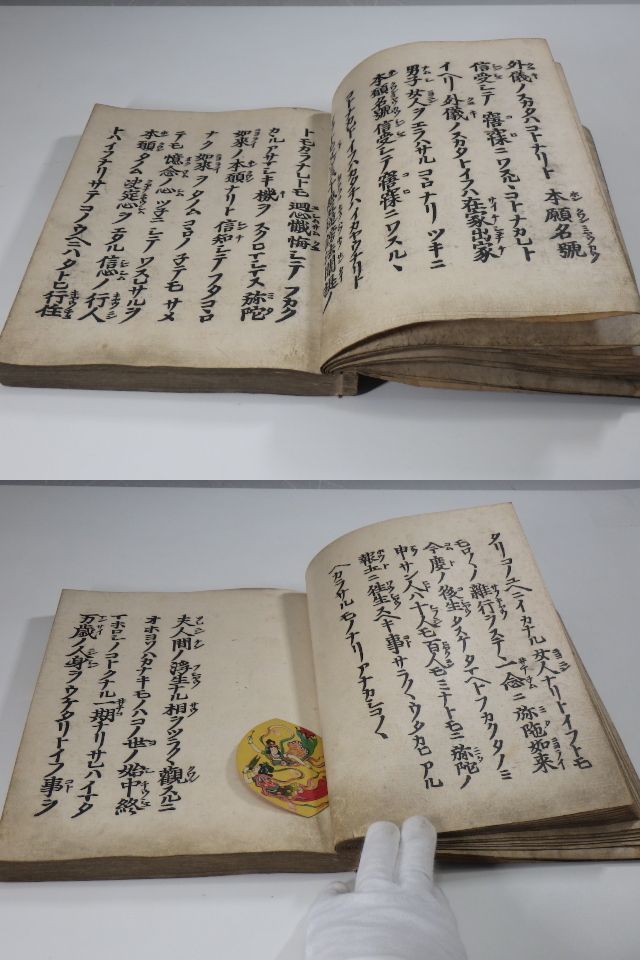 外儀ノスカタハコトナリト 本願名號
信受シテ 寤寐ニワスルヽコトナカレト
イヘリ 外儀ノスカタトイフハ在家出家
男子女人ヲエラハサルコヽロナリ ツキニ
本願名號信受シテ寤寐ニワスルヽ
コトナカレトイフハカタチハイカヤウナリト
トモカラナレトモ 廻心懺悔シテフカク
カヽルアサマシキ機ヲスクヒマシマス 弥陀
如来ノ本願ナリト信知シテフタコヽロ
ナク如来ヲタノムコヽロノネテモサメ
テモ憶念ノ心ツネニシテワスレサルヲ
本願タノム決定心ヲエタル信心ノ行人
トハイフナリサテコノウヘニハタトヒ行住
タリコノユヘニイカナル女人ナリトイフトモ
モロ〱ノ雜行ヲステヽ一念ニ弥陀如来
今度ノ後生タスケタマヘトフカクタノミ
申サン人ハ十人モ百人モミナトモニ弥陀ノ
報土ニ往生スヘキ事サラ〱ウタカヒアル
ヘカラサルモノナリアナカシコ〱
夫人間ノ浮生ナル相ヲツラ〱觀スルニ
オホヨソハカナキモノハコノ世ノ始中終
マホロシノコトクナル一期ナリサレハイマタ
万歳ノ人身ヲウケタリトイフ事ヲ